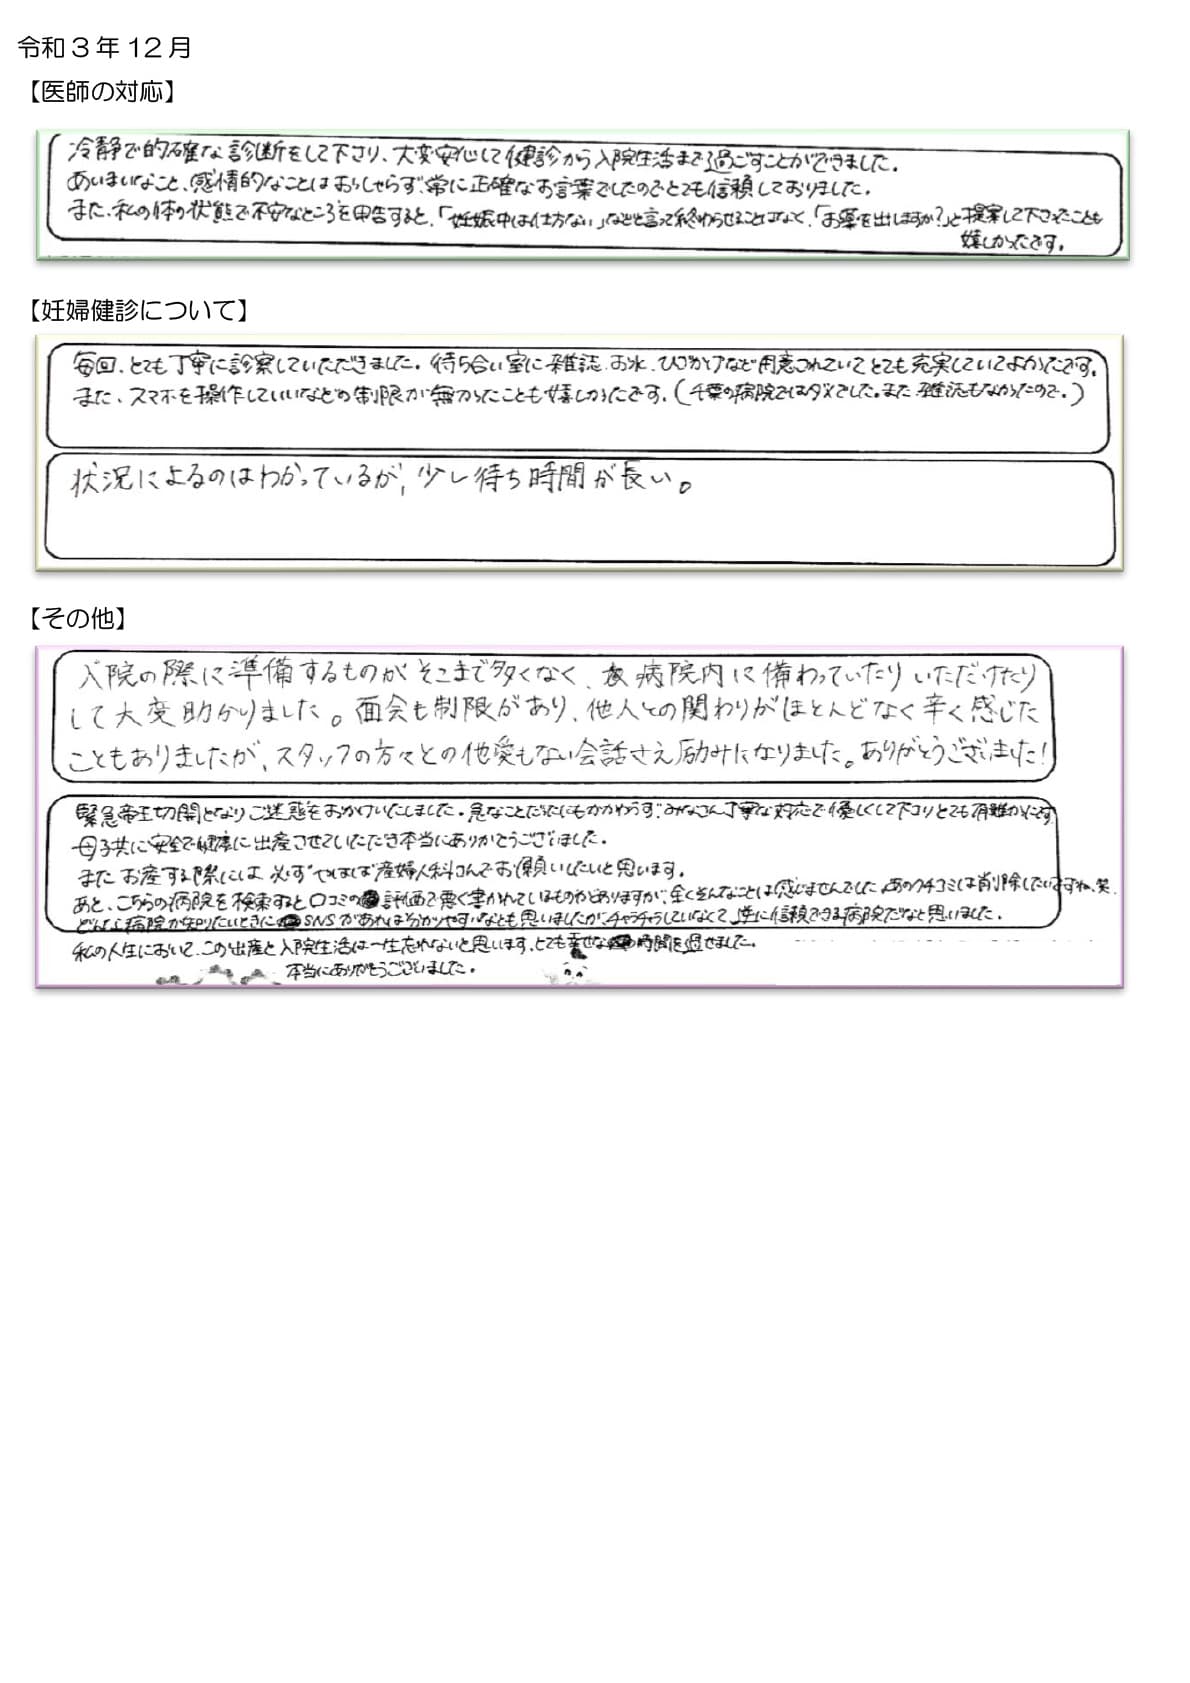 令和3年12月
【医師の対応】
冷静で的確な診断をして下さり、大変安心して健診から入院生活まで過ごすことができました。
あいまいなこと、感情的なことはおっしゃらず常に正確なお言葉でしたのでとても信頼しておりました。
また、私の体の状態で不安なところを申告すると、「妊娠中は仕方ない」などと言って終わらせることはなく、「お薬を出しますか?」と提案して下さったことも
嬉しかったです。
【妊婦健診について】
毎回、とても丁寧に診察していただきました。待ち合い室に雑誌、お水、ひざかけなど用意されていてとても充実していてよかったです。
また、スマホを操作していいなどの制限が無かったことも嬉しかったです。(千葉の病院ではダメでした。また雑誌もなかったので。)
状況によるのはわかっているが、少し待ち時間が長い。
【その他】
入院の際に準備するものがそこまで多くなく、病院内に備わっていたりいただけたり
して大変助かりました。面会も制限があり、他人との関わりがほとんどなく辛く感じた
こともありましたが、スタッフの方々との他愛もない会話さえ励みになりました。ありがとうございました!
緊急帝王切開となりご迷惑をおかけいたしました。急なことだったにもかかわらず、みなさん丁寧な対応で優しくして下さりとても有難かったです
母子共に安全で健康に出産させていただき本当にありがとうございました。
またお産する際には必ずやはしば産婦人科さんでお願いしたいと思います。
あと、こちらの病院を検索すると口コミの評価で悪く書かれているものがありますが、全くそんなことは感じませんでした。あのクチコミは削除したいですね、笑
どんな病院か知りたいときにSNSがあれば分かりやすいなとも思いましたが、チャラチャラしていなくて、逆に信頼できる病院だなと思いました。
私の人生において、この出産と入院生活は一生忘れないと思います。とても幸せな時間を過せました。
本当にありがとうございました。